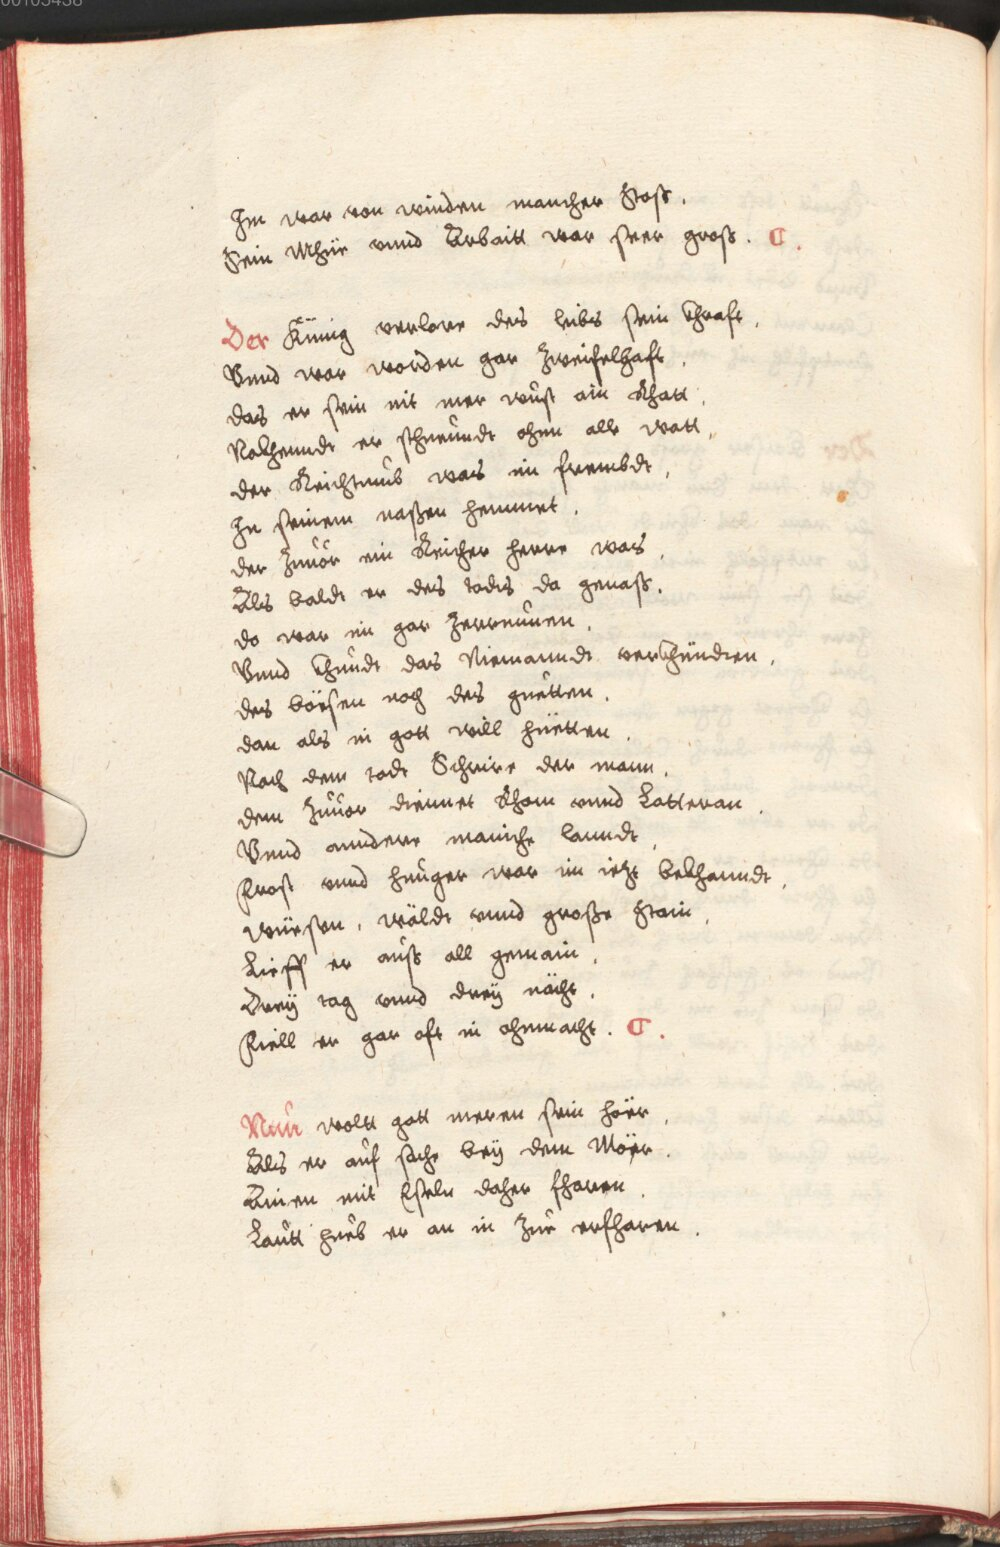 00103438
Im war von winden mancher Stoß.
Sein Mhüe vnnd Arbaitt war seer groß. C.
Der Künig verlore des leibs sein Chraft.
Vnnd war worden gar Zweifelhaft.
das er sein nit mer wust ain Rhatt.
Nakhenndt er schwundt ohn alle watt.
der Reichtumb was im frembdt.
In seinem naßen hemmet.
der Zuuor ein Reicher herre was.
Als baldt er des todts da genaß.
do war im gar Zerrunnen.
Vnnd Chundt das Niemanndt verkhünden.
des bößen noch des guetten.
dan als in gott will huetten.
Nach dem todt Schrire der mann.
dem Zuuor diennet Rhom vnnd Latteran.
Vnnd anndere maniche lanndt.
Frost vnnd hunger war im ietzt bekhanndt.
würsen, wäldt vnnd große Stain.
Lieff er auß all gemain.
Drey tag vnnd drey nächt.
Fiell er gar oft in ohnmacht. C.
Nun wolt gott meren sein höer.
Als er auf sache bey dem Möer.
Ainen mit Eseln daher fharen.
Lautt hueb er an in Zue erfharen.